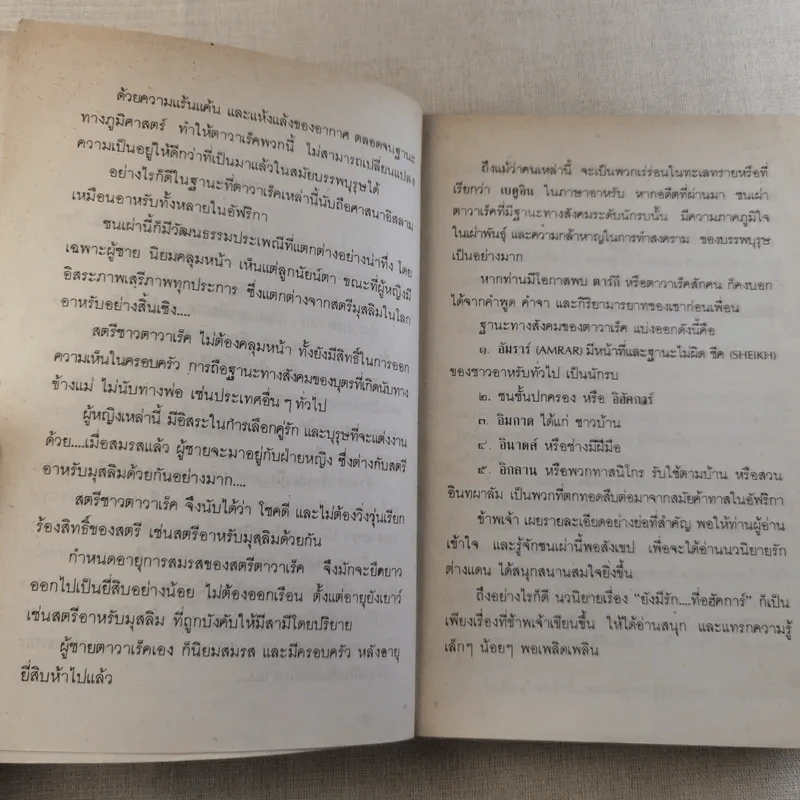 ด้วยความแร้นแค้น และแห้งแล้งของอากาศ ตลอดจนฐานะ
ทางภูมิศาสตร์ ทำให้ตาวาเร็คพวกนี้ ไม่สามารถเปลี่ยนแปลง
ความเป็นอยู่ให้ดีกว่าที่เป็นมาแล้วในสมัยบรรพบุรุษได้
อย่างไรก็ดีในฐานะที่ตาวาเร็คเหล่านี้นับถือศาสนาอิสลาม
เหมือนอาหรับทั้งหลายในอัฟริกา
ชนเผ่านี้ก็มีวัฒนธรรมประเพณีที่แตกต่างอย่างน่าทึ่ง โดย
เฉพาะผู้ชาย นิยมคลุมหน้า เห็นแต่ลูกนัยน์ตา ขณะที่ผู้หญิงมี
อิสระภาพเสรีภาพทุกประการ ซึ่งแตกต่างจากสตรีมุสลิมในโลก
อาหรับอย่างสิ้นเชิง....
สตรีชาวตาวาเร็ค ไม่ต้องคลุมหน้า ทั้งยังมีสิทธิ์ในการออก
ความเห็นในครอบครัว การถือฐานะทางสังคมของบุตรที่เกิดนับทาง
ข้างแม่ ไม่นับทางพ่อ เช่นประเทศอื่น ๆ ทั่วไป
ผู้หญิงเหล่านี้ มีอิสระในการเลือกคู่รัก และบุรุษที่จะแต่งงาน
ด้วย....เมื่อสมรสแล้ว ผู้ชายจะมาอยู่กับฝ่ายหญิง ซึ่งต่างกับสตรี
อาหรับมุสลิมด้วยกันอย่างมาก....
สตรีชาวตาวาเร็ค จึงนับได้ว่า โชคดี และไม่ต้องวิ่งวุ่นเรียก
ร้องสิทธิ์ของสตรี เช่นสตรีอาหรับมุสลิมด้วยกัน
กำหนดอายุการสมรสของสตรีตาวาเร็ค จึงมักจะยืดยาว
ออกไปเป็นยี่สิบอย่างน้อย ไม่ต้องออกเรือน ตั้งแต่อายุยังเยาว์
เช่นสตรีอาหรับมุสลิม ที่ถูกบังคับให้มีสามีโดยปริยาย
ผู้ชายตาวาเร็คเอง ก็นิยมสมรส และมีครอบครัว หลังอายุ
ยี่สิบห้าไปแล้ว
ถึงแม้ว่าคนเหล่านี้ จะเป็นพวกเร่ร่อนในทะเลทรายหรือที่
เรียกว่า เบดูอิน ในภาษาอาหรับ หากอดีตที่ผ่านมา ชนเผ่า
ตาวาเร็คที่มีฐานะทางสังคมระดับนักรบนั้น มีความภาคภูมิใจ
ในเผ่าพันธุ์ และความกล้าหาญในการทำสงคราม ของบรรพบุรุษ
เป็นอย่างมาก
หากท่านมีโอกาสพบ ตาร์กี หรือตาวาเร็คสักคน ก็คงบอก
ได้จากคำพูด คำจา และกิริยามารยาทของเขาก่อนเพื่อน
ฐานะทางสังคมของตาวาเร็ค แบ่งออกดังนี้คือ
๑. อัมราร์ (AMRAR) มีหน้าที่และฐานะไม่ผิด ชีค (SHEIKH)
ของชาวอาหรับทั่วไป เป็นนักรบ
๒. ชนชั้นปกครอง หรือ อิฮัคการ์
๓. อิมกาด ได้แก่ ชาวบ้าน
๔. อินาดส์ หรือช่างมีฝีมือ
๕. อิกลาน หรือพวกทาสนิโกร รับใช้ตามบ้าน หรือสวน
อินทผาลัม เป็นพวกที่ตกทอดสืบต่อมาจากสมัยค้าทาสในอัฟริกา
ข้าพเจ้า เผยรายละเอียดอย่างย่อที่สำคัญ พอให้ท่านผู้อ่าน
เข้าใจ และรู้จักชนเผ่านี้พอสังเขป เพื่อจะได้อ่านนวนิยายรัก
ต่างแดน ได้สนุกสนานสมใจยิ่งขึ้น
ถึงอย่างไรก็ดี นวนิยายเรื่อง "ยังมีรัก....ที่อฮัคการ์" ก็เป็น
เพียงเรื่องที่ข้าพเจ้าเขียนขึ้น ให้ได้อ่านสนุก และแทรกความรู้
เล็กๆ น้อยๆ พอเพลิดเพลิน